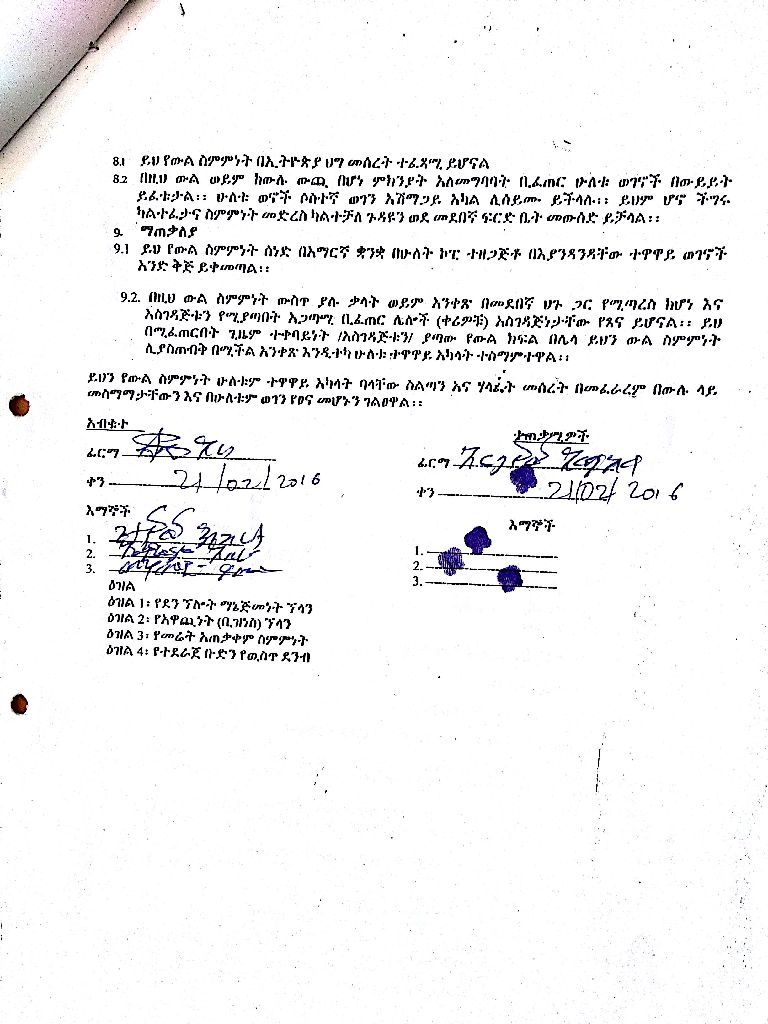 8.1 ይህ የውል ስምምነት በኢትዮጵያ ህግ መሰረት ተፈጻሚ ይሆናል
8.2 በዚህ ውል ወይም ከውሉ ውጪ በሆነ ምክንያት አለመግባባት ቢፈጠር ሁለቱ ወገኖች በውይይት
ይፈቱታል፡፡ ሁለቱ ወኖች ሶስተኛ ወገን አሸማጋይ አካል ሊሰይሙ ይችላሉ፡፡ ይህም ሆኖ ችግሩ
ካልተፈታና ስምምነት መድረስ ካልተቻለ ጉዳዩን ወደ መደበኛ ፍርድ ቤት መውሰድ ይቻላል፡፡
9. ማጠቃለያ
9.1 ይህ የውል ስምምነት ሰነድ በአማርኛ ቋንቋ በሁለት ኮፒ ተዘጋጅቶ በእያንዳንዳቸው ተዋዋይ ወገኖች
አንድ ቅጅ ይቀመጣል፡፡
9.2. በዚህ ውል ስምምነት ውስጥ ያሉ ቃላት ወይም አንቀጽ በመደበኛ ህጉ ጋር የሚጣረስ ከሆነ እና
አስገዳጅቱን የሚያጣበት አጋጣሚ ቢፈጠር ሌሎች (ቀሪዎቹ) አስገዳጅነታቸው የጸና ይሆናል፡፡ ይህ
በሚፈጠርበት ጊዜም ተቀባይነት /አስገዳጅቱን/ ያጣው የውል ክፍል በሌላ ይህን ውል ስምምነት
ሊያስጠብቅ በሚችል አንቀጽ እንዲተካ ሁለቱ ተዋዋይ አካላት ተስማምተዋል፡፡
ይህን የውል ስምምነት ሁለቱም ተዋዋይ አካላት ባላቸው ስልጣን እና ሃላፊት መሰረት በመፈራረም በውሉ ላይ
መስማማታቸውን እና በሁለቱም ወገን የፀና መሆኑን ገልፀዋል፡፡
አብቁተ
ተጠቃሚዎች
ፊርማ
ፊርማ
ቀን 21/02/2016
ቀን 21/02/2016
እማኞች
እማኞች
1.
2.
3.
1.
2.
3.
ዕዝል
ዕዝል 1፡ የደን ፕሎት ማኔጅመነት ፕላን
ዕዝል 2፡ የአዋጪነት (ቢዝነስ) ፕላን
ዕዝል 3፡ የመሬት አጠቃቀም ስምምነት
ዕዝል 4፡ የተደራጀ ቡድን የዉስጥ ደንብ